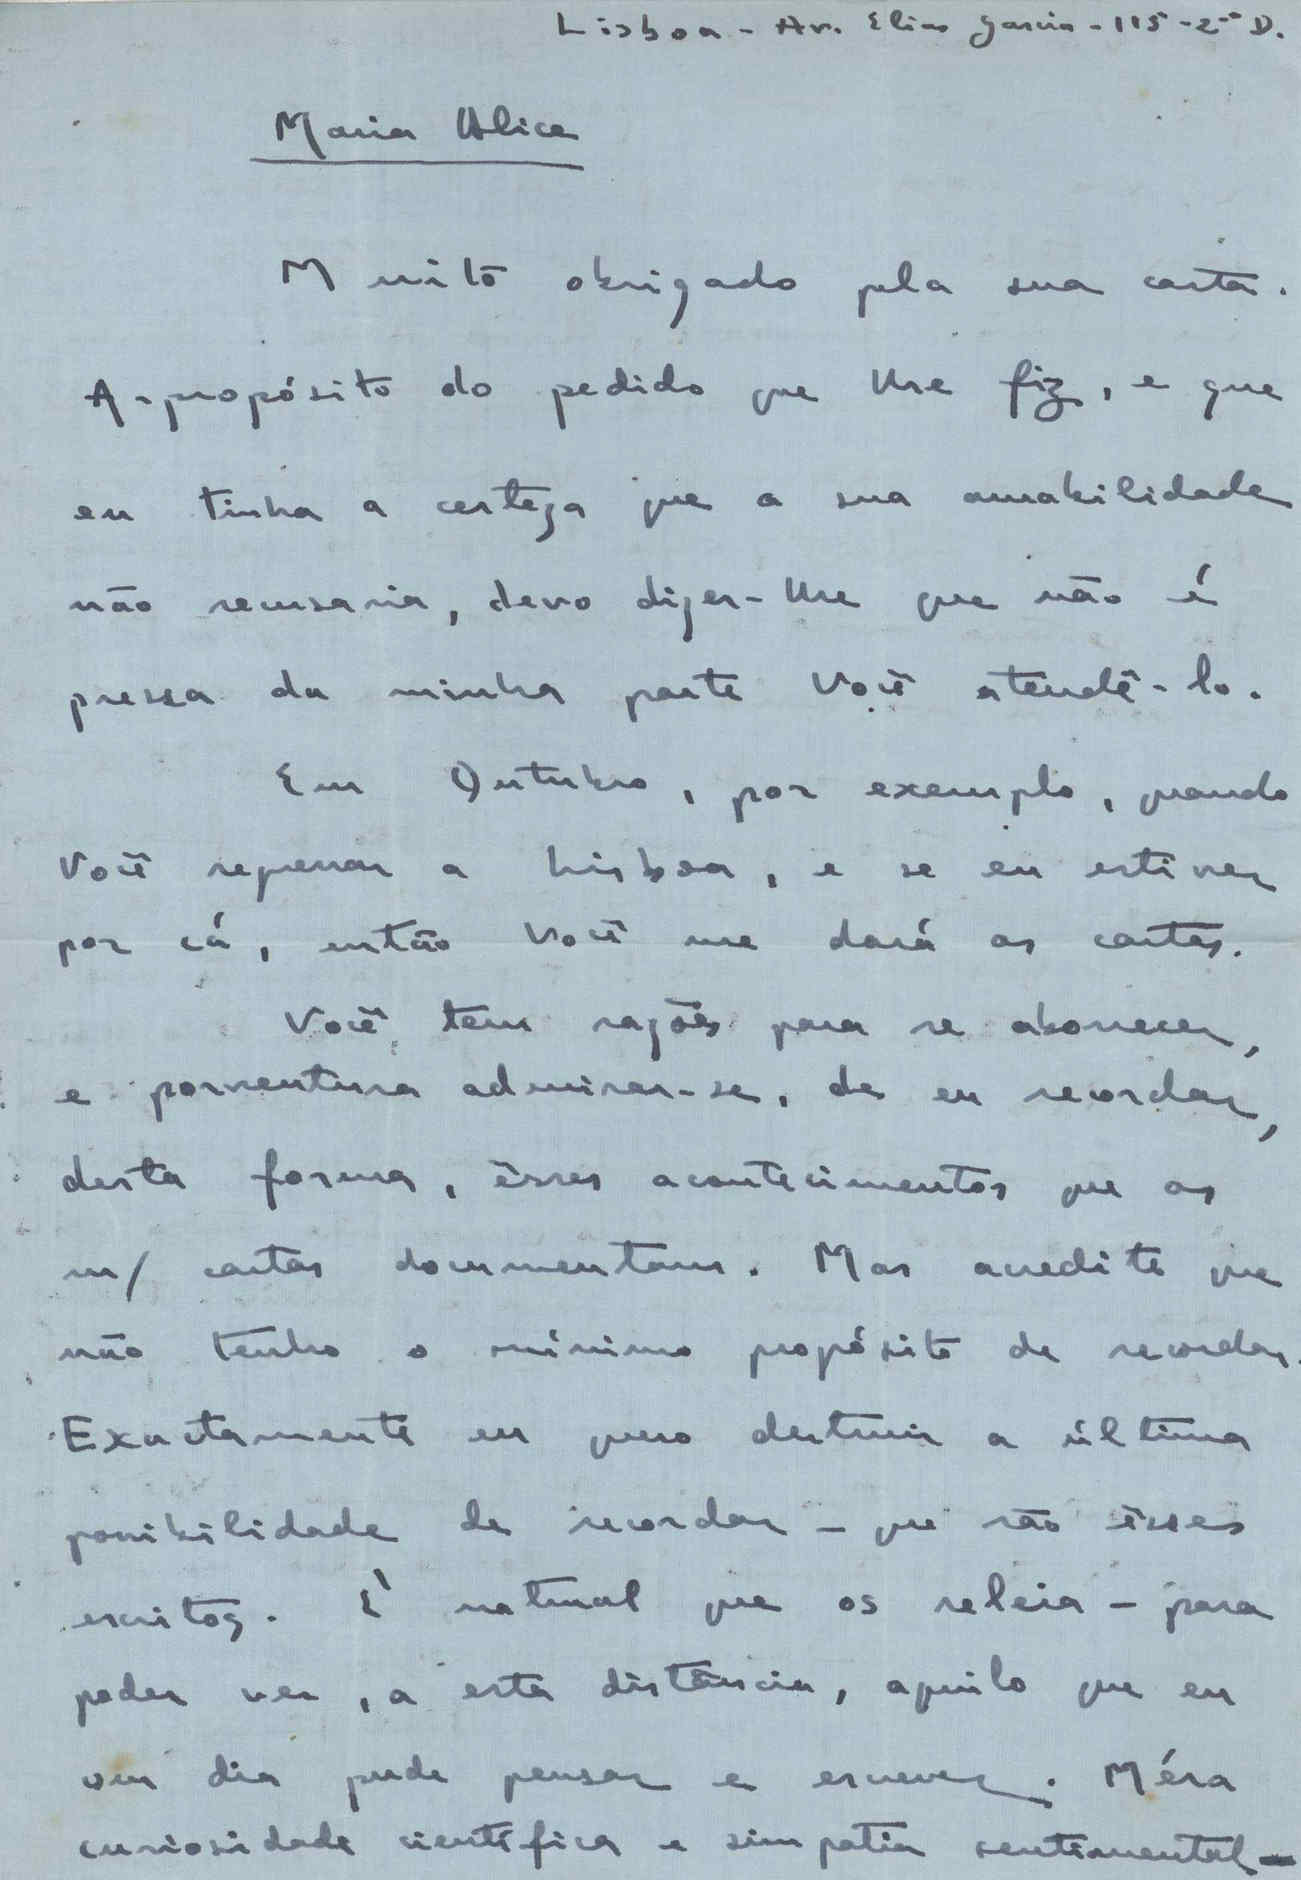 Lisboa - Av. Elias Garcia - 115 - 2º D.
Maria Alice
Muito obrigado pela sua carta.
A-propósito do pedido que lhe fiz, e que
eu tinha a certeza que a sua amabilidade
não recusaria, devo dizer-lhe que não é
pressa da minha parte Você atendê-lo.
Em Outubro, por exemplo, quando
Você regressar a Lisboa, e se eu estiver
por cá, então Você me dará as cartas.
Você tem razões para se aborrecer,
e porventura admirar-se, de eu recordar,
desta forma, êsses acontecimentos que as
m/ cartas documentam. Mas acredite que
não tenho o mínimo propósito de recordar.
Exactamente eu quero destruir a última
possibilidade de recordar - que são êsses
escritos. É natural que os releia - para
poder ver, a esta distância, aquilo que eu
um dia pude pensar e escrever. Méra
curiosidade científica e simpatia sentimental -